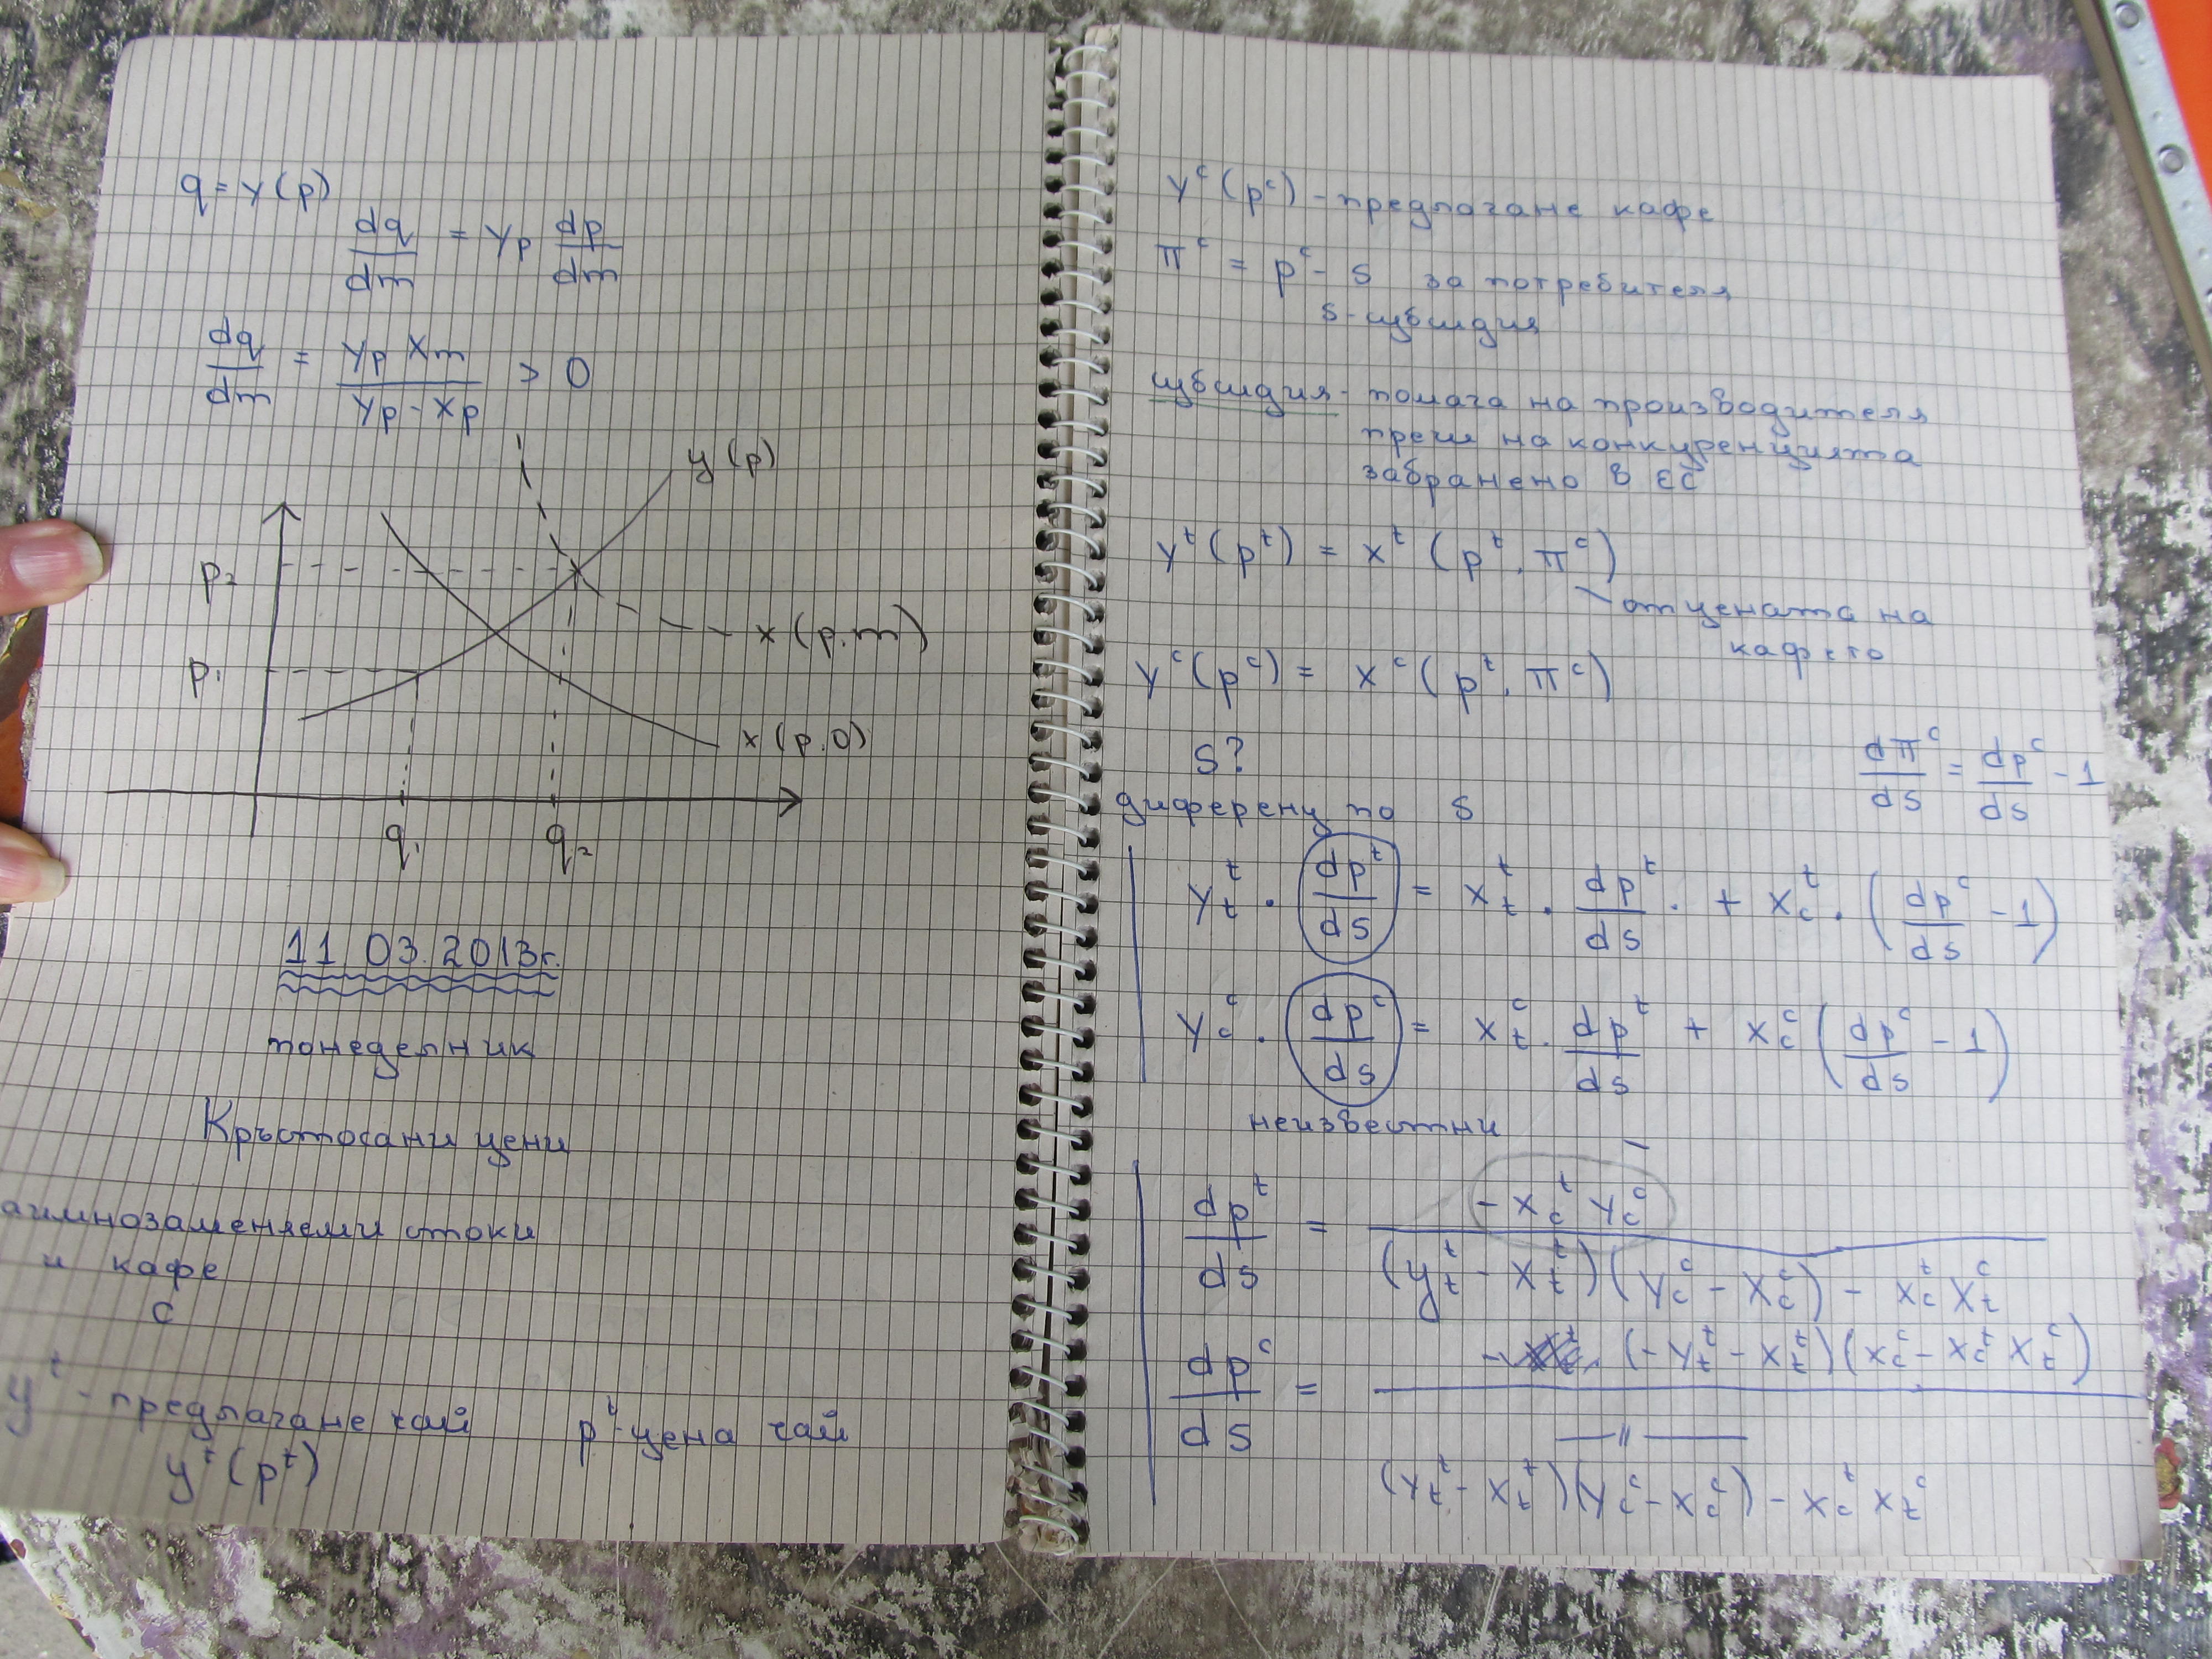 q = y(p)
dq/dm = yp dp/dm
dq/dm = yp xm / yp - xp > 0
y(p)
p₂
x(p.m)
p₁
x(p.0)
q₁ q₂
11 03.2013г.
понеделник
Кръстосани цени
аимнозаменяеми стоки
и кафе
c
yᵗ - предлагане чай pᵗ - цена чай
yᵗ(pᵗ)
yᶜ(pᶜ) - предлагане кафе
πᶜ = pᶜ - s за потребителя
s - субсидия
субсидия - помага на производителя
пречи на конкуренцията
забранено в ЕС
yᵗ(pᵗ) = xᵗ(pᵗ, πᶜ)
от цената на
кафето
yᶜ(pᶜ) = xᶜ(pᵗ, πᶜ)
s?
dπᶜ/ds = dpᶜ/ds - 1
диференц по s
yₜᵗ . dpᵗ/ds = xₜᵗ . dpᵗ/ds . + x꜀ᵗ . (dpᶜ/ds - 1)
y꜀ᶜ . dpᶜ/ds = xₜᶜ . dpᵗ/ds + x꜀ᶜ (dpᶜ/ds - 1)
неизвестни
dpᵗ/ds = - x꜀ᵗ y꜀ᶜ / (yₜᵗ - xₜᵗ)(y꜀ᶜ - x꜀ᶜ) - x꜀ᵗ xₜᶜ
dpᶜ/ds = - (- yₜᵗ - xₜᵗ)(x꜀ᶜ - x꜀ᵗ xₜᶜ) / —〃—
(yₜᵗ - xₜᵗ)(y꜀ᶜ - x꜀ᶜ) - x꜀ᵗ xₜᶜ